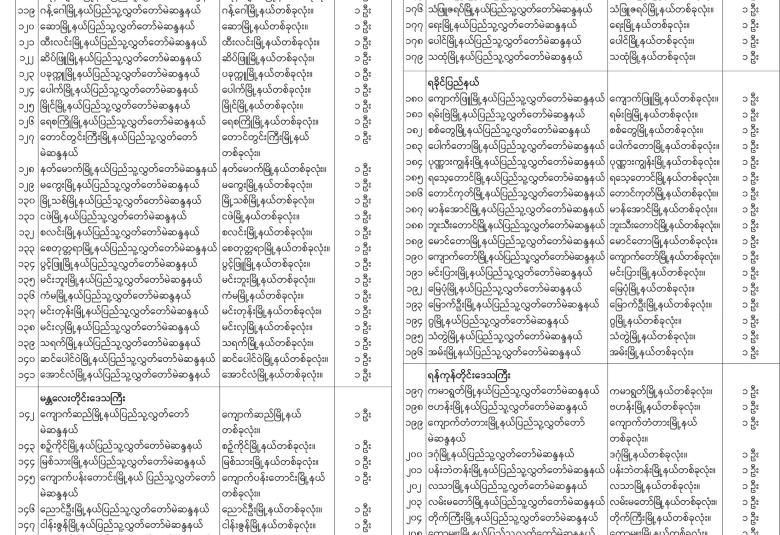 ၁၁၉ ဂန့်ဂေါမြို့နယ်ပြည်သူ့လွှတ်တော်မဲဆန္ဒနယ် ဂန့်ဂေါမြို့နယ်တစ်ခုလုံး။ ၁ ဦး
၁၂၀ ဆောမြို့နယ်ပြည်သူ့လွှတ်တော်မဲဆန္ဒနယ် ဆောမြို့နယ်တစ်ခုလုံး။ ၁ ဦး
၁၂၁ ထီးလင်းမြို့နယ်ပြည်သူ့လွှတ်တော်မဲဆန္ဒနယ် ထီးလင်းမြို့နယ်တစ်ခုလုံး။ ၁ ဦး
၁၂၂ ဆိပ်ဖြူမြို့နယ်ပြည်သူ့လွှတ်တော်မဲဆန္ဒနယ် ဆိပ်ဖြူမြို့နယ်တစ်ခုလုံး။ ၁ ဦး
၁၂၃ ပခုက္ကူမြို့နယ်ပြည်သူ့လွှတ်တော်မဲဆန္ဒနယ် ပခုက္ကူမြို့နယ်တစ်ခုလုံး။ ၁ ဦး
၁၂၄ ပေါက်မြို့နယ်ပြည်သူ့လွှတ်တော်မဲဆန္ဒနယ် ပေါက်မြို့နယ်တစ်ခုလုံး။ ၁ ဦး
၁၂၅ မြိုင်မြို့နယ်ပြည်သူ့လွှတ်တော်မဲဆန္ဒနယ် မြိုင်မြို့နယ်တစ်ခုလုံး။ ၁ ဦး
၁၂၆ ရေစကြိုမြို့နယ်ပြည်သူ့လွှတ်တော်မဲဆန္ဒနယ် ရေစကြိုမြို့နယ်တစ်ခုလုံး။ ၁ ဦး
၁၂၇ တောင်တွင်းကြီးမြို့နယ်ပြည်သူ့လွှတ်တော် တောင်တွင်းကြီးမြို့နယ် ၁ ဦး
မဲဆန္ဒနယ် တစ်ခုလုံး။
၁၂၈ နတ်မောက်မြို့နယ်ပြည်သူ့လွှတ်တော်မဲဆန္ဒနယ် နတ်မောက်မြို့နယ်တစ်ခုလုံး။ ၁ ဦး
၁၂၉ မကွေးမြို့နယ်ပြည်သူ့လွှတ်တော်မဲဆန္ဒနယ် မကွေးမြို့နယ်တစ်ခုလုံး။ ၁ ဦး
၁၃၀ မြို့သစ်မြို့နယ်ပြည်သူ့လွှတ်တော်မဲဆန္ဒနယ် မြို့သစ်မြို့နယ်တစ်ခုလုံး။ ၁ ဦး
၁၃၁ ငဖဲမြို့နယ်ပြည်သူ့လွှတ်တော်မဲဆန္ဒနယ် ငဖဲမြို့နယ်တစ်ခုလုံး။ ၁ ဦး
၁၃၂ စလင်းမြို့နယ်ပြည်သူ့လွှတ်တော်မဲဆန္ဒနယ် စလင်းမြို့နယ်တစ်ခုလုံး။ ၁ ဦး
၁၃၃ စေတုတ္တရာမြို့နယ်ပြည်သူ့လွှတ်တော်မဲဆန္ဒနယ် စေတုတ္တရာမြို့နယ်တစ်ခုလုံး။ ၁ ဦး
၁၃၄ ပွင့်ဖြူမြို့နယ်ပြည်သူ့လွှတ်တော်မဲဆန္ဒနယ် ပွင့်ဖြူမြို့နယ်တစ်ခုလုံး။ ၁ ဦး
၁၃၅ မင်းဘူးမြို့နယ်ပြည်သူ့လွှတ်တော်မဲဆန္ဒနယ် မင်းဘူးမြို့နယ်တစ်ခုလုံး။ ၁ ဦး
၁၃၆ ကံမမြို့နယ်ပြည်သူ့လွှတ်တော်မဲဆန္ဒနယ် ကံမမြို့နယ်တစ်ခုလုံး။ ၁ ဦး
၁၃၇ မင်းတုန်းမြို့နယ်ပြည်သူ့လွှတ်တော်မဲဆန္ဒနယ် မင်းတုန်းမြို့နယ်တစ်ခုလုံး။ ၁ ဦး
၁၃၈ မင်းလှမြို့နယ်ပြည်သူ့လွှတ်တော်မဲဆန္ဒနယ် မင်းလှမြို့နယ်တစ်ခုလုံး။ ၁ ဦး
၁၃၉ သရက်မြို့နယ်ပြည်သူ့လွှတ်တော်မဲဆန္ဒနယ် သရက်မြို့နယ်တစ်ခုလုံး။ ၁ ဦး
၁၄၀ ဆင်ပေါင်ဝဲမြို့နယ်ပြည်သူ့လွှတ်တော်မဲဆန္ဒနယ် ဆင်ပေါင်ဝဲမြို့နယ်တစ်ခုလုံး။ ၁ ဦး
၁၄၁ အောင်လံမြို့နယ်ပြည်သူ့လွှတ်တော်မဲဆန္ဒနယ် အောင်လံမြို့နယ်တစ်ခုလုံး။ ၁ ဦး
မန္တလေးတိုင်းဒေသကြီး
၁၄၂ ကျောက်ဆည်မြို့နယ်ပြည်သူ့လွှတ်တော် ကျောက်ဆည်မြို့နယ် ၁ ဦး
မဲဆန္ဒနယ် တစ်ခုလုံး။
၁၄၃ စဉ့်ကိုင်မြို့နယ်ပြည်သူ့လွှတ်တော်မဲဆန္ဒနယ် စဉ့်ကိုင်မြို့နယ်တစ်ခုလုံး။ ၁ ဦး
၁၄၄ မြစ်သားမြို့နယ်ပြည်သူ့လွှတ်တော်မဲဆန္ဒနယ် မြစ်သားမြို့နယ်တစ်ခုလုံး။ ၁ ဦး
၁၄၅ ကျောက်ပန်းတောင်းမြို့နယ် ပြည်သူ့လွှတ်တော် ကျောက်ပန်းတောင်းမြို့နယ် ၁ ဦး
မဲဆန္ဒနယ် တစ်ခုလုံး။
၁၄၆ ညောင်ဦးမြို့နယ်ပြည်သူ့လွှတ်တော်မဲဆန္ဒနယ် ညောင်ဦးမြို့နယ်တစ်ခုလုံး။ ၁ ဦး
၁၄၇ ငါန်းဇွန်မြို့နယ်ပြည်သူ့လွှတ်တော်မဲဆန္ဒနယ် ငါန်းဇွန်မြို့နယ်တစ်ခုလုံး။ ၁ ဦး
၁၇၆ သံဖြူဇရပ်မြို့နယ်ပြည်သူ့လွှတ်တော်မဲဆန္ဒနယ် သံဖြူဇရပ်မြို့နယ်တစ်ခုလုံး။ ၁ ဦး
၁၇၇ ရေးမြို့နယ်ပြည်သူ့လွှတ်တော်မဲဆန္ဒနယ် ရေးမြို့နယ်တစ်ခုလုံး။ ၁ ဦး
၁၇၈ ပေါင်မြို့နယ်ပြည်သူ့လွှတ်တော်မဲဆန္ဒနယ် ပေါင်မြို့နယ်တစ်ခုလုံး။ ၁ ဦး
၁၇၉ သထုံမြို့နယ်ပြည်သူ့လွှတ်တော်မဲဆန္ဒနယ် သထုံမြို့နယ်တစ်ခုလုံး။ ၁ ဦး
ရခိုင်ပြည်နယ်
၁၈၀ ကျောက်ဖြူမြို့နယ်ပြည်သူ့လွှတ်တော်မဲဆန္ဒနယ် ကျောက်ဖြူမြို့နယ်တစ်ခုလုံး။ ၁ ဦး
၁၈၁ ရမ်းဗြဲမြို့နယ်ပြည်သူ့လွှတ်တော်မဲဆန္ဒနယ် ရမ်းဗြဲမြို့နယ်တစ်ခုလုံး။ ၁ ဦး
၁၈၂ စစ်တွေမြို့နယ်ပြည်သူ့လွှတ်တော်မဲဆန္ဒနယ် စစ်တွေမြို့နယ်တစ်ခုလုံး။ ၁ ဦး
၁၈၃ ပေါက်တောမြို့နယ်ပြည်သူ့လွှတ်တော်မဲဆန္ဒနယ် ပေါက်တောမြို့နယ်တစ်ခုလုံး။ ၁ ဦး
၁၈၄ ပုဏ္ဏားကျွန်းမြို့နယ်ပြည်သူ့လွှတ်တော်မဲဆန္ဒနယ် ပုဏ္ဏားကျွန်းမြို့နယ်တစ်ခုလုံး။ ၁ ဦး
၁၈၅ ရသေ့တောင်မြို့နယ်ပြည်သူ့လွှတ်တော်မဲဆန္ဒနယ် ရသေ့တောင်မြို့နယ်တစ်ခုလုံး။ ၁ ဦး
၁၈၆ တောင်ကုတ်မြို့နယ်ပြည်သူ့လွှတ်တော်မဲဆန္ဒနယ် တောင်ကုတ်မြို့နယ်တစ်ခုလုံး။ ၁ ဦး
၁၈၇ မာန်အောင်မြို့နယ်ပြည်သူ့လွှတ်တော်မဲဆန္ဒနယ် မာန်အောင်မြို့နယ်တစ်ခုလုံး။ ၁ ဦး
၁၈၈ ဘူးသီးတောင်မြို့နယ်ပြည်သူ့လွှတ်တော်မဲဆန္ဒနယ် ဘူးသီးတောင်မြို့နယ်တစ်ခုလုံး။ ၁ ဦး
၁၈၉ မောင်တောမြို့နယ်ပြည်သူ့လွှတ်တော်မဲဆန္ဒနယ် မောင်တောမြို့နယ်တစ်ခုလုံး။ ၁ ဦး
၁၉၀ ကျောက်တော်မြို့နယ်ပြည်သူ့လွှတ်တော်မဲဆန္ဒနယ် ကျောက်တော်မြို့နယ်တစ်ခုလုံး။ ၁ ဦး
၁၉၁ မင်းပြားမြို့နယ်ပြည်သူ့လွှတ်တော်မဲဆန္ဒနယ် မင်းပြားမြို့နယ်တစ်ခုလုံး။ ၁ ဦး
၁၉၂ မြေပုံမြို့နယ်ပြည်သူ့လွှတ်တော်မဲဆန္ဒနယ် မြေပုံမြို့နယ်တစ်ခုလုံး။ ၁ ဦး
၁၉၃ မြောက်ဦးမြို့နယ်ပြည်သူ့လွှတ်တော်မဲဆန္ဒနယ် မြောက်ဦးမြို့နယ်တစ်ခုလုံး။ ၁ ဦး
၁၉၄ ဂွမြို့နယ်ပြည်သူ့လွှတ်တော်မဲဆန္ဒနယ် ဂွမြို့နယ်တစ်ခုလုံး။ ၁ ဦး
၁၉၅ သံတွဲမြို့နယ်ပြည်သူ့လွှတ်တော်မဲဆန္ဒနယ် သံတွဲမြို့နယ်တစ်ခုလုံး။ ၁ ဦး
၁၉၆ အမ်းမြို့နယ်ပြည်သူ့လွှတ်တော်မဲဆန္ဒနယ် အမ်းမြို့နယ်တစ်ခုလုံး။ ၁ ဦး
ရန်ကုန်တိုင်းဒေသကြီး
၁၉၇ ကမာရွတ်မြို့နယ်ပြည်သူ့လွှတ်တော်မဲဆန္ဒနယ် ကမာရွတ်မြို့နယ်တစ်ခုလုံး။ ၁ ဦး
၁၉၈ ဗဟန်းမြို့နယ်ပြည်သူ့လွှတ်တော်မဲဆန္ဒနယ် ဗဟန်းမြို့နယ်တစ်ခုလုံး။ ၁ ဦး
၁၉၉ ကျောက်တံတားမြို့နယ်ပြည်သူ့လွှတ်တော် ကျောက်တံတားမြို့နယ် ၁ ဦး
မဲဆန္ဒနယ် တစ်ခုလုံး။
၂၀၀ ဒဂုံမြို့နယ်ပြည်သူ့လွှတ်တော်မဲဆန္ဒနယ် ဒဂုံမြို့နယ်တစ်ခုလုံး။ ၁ ဦး
၂၀၁ ပန်းဘဲတန်းမြို့နယ်ပြည်သူ့လွှတ်တော်မဲဆန္ဒနယ် ပန်းဘဲတန်းမြို့နယ်တစ်ခုလုံး။ ၁ ဦး
၂၀၂ လသာမြို့နယ်ပြည်သူ့လွှတ်တော်မဲဆန္ဒနယ် လသာမြို့နယ်တစ်ခုလုံး။ ၁ ဦး
၂၀၃ လမ်းမတော်မြို့နယ်ပြည်သူ့လွှတ်တော်မဲဆန္ဒနယ် လမ်းမတော်မြို့နယ်တစ်ခုလုံး။ ၁ ဦး
၂၀၄ တိုက်ကြီးမြို့နယ်ပြည်သူ့လွှတ်တော်မဲဆန္ဒနယ် တိုက်ကြီးမြို့နယ်တစ်ခုလုံး။ ၁ ဦး